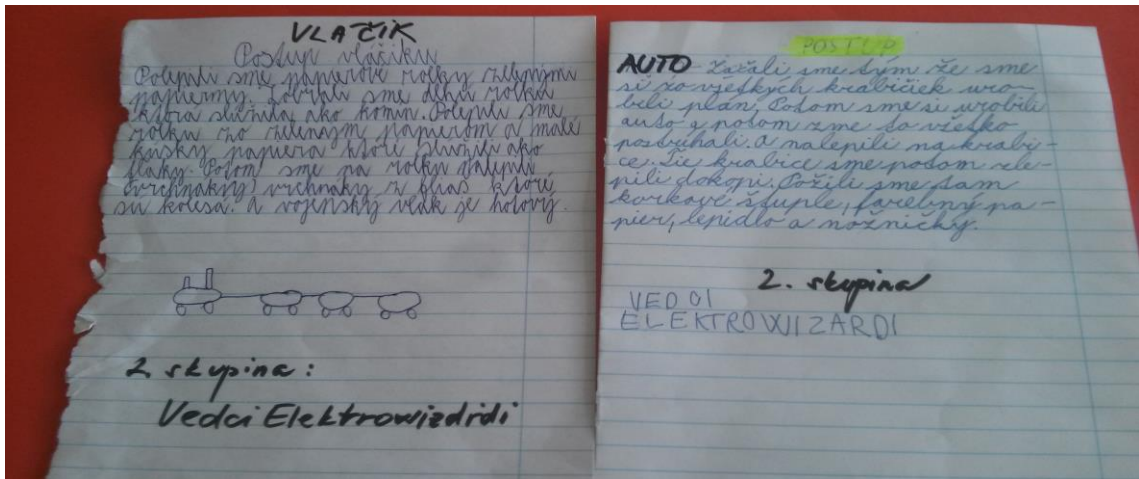 VLAČIK
Postup vláčiku
Polepili sme papierové rolky zelenými
papiermy. Zobrali sme dlhú rolku
ktorá slúžila ako komín. Polepili sme
rolku zo zeleným papierom a malé
kúsky papiera ktoré slúžili ako
fľaky. Potom sme na rolku nalepili
vrchnáky z fliaš ktoré
sú kolesá. A vojenský vlak je hotový.
2. skupina:
Vedci Elektrowizdrdi
POSTUP
AUTO Začali sme tým že sme
si zo všetkých krabičiek uro-
bili plán. Potom sme si urobili
auto a potom sme to všetko
postrihali. A nalepili na krabi-
ce. Tie krabice sme potom zle-
pili dokopi. Požili sme tam
korkové štuple, farebný pa-
pier, lepidlo a nožničky.
2. skupina
VEDCI
ELEKTROWIZARDI